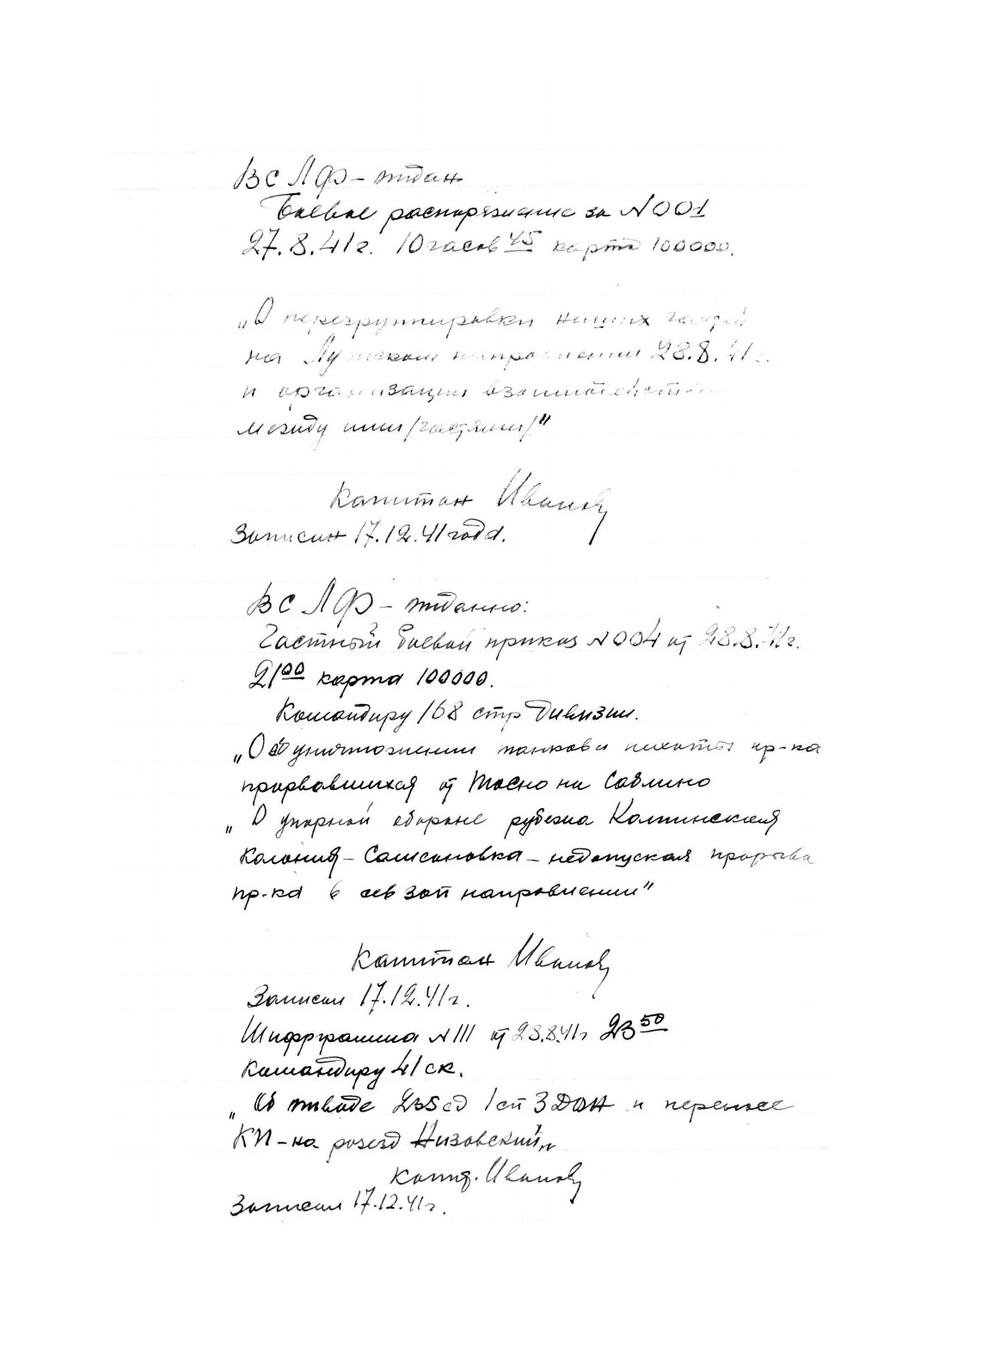 ВС ЛФ – отдан
Боевое распоряжение за N 001
27.8.41г. 10 часов 45 карта 100000.
„О перегруппировки наших частей
на Лужском направлении 28.8.41г.
и организации взаимодействия
между ними /частями/"
Капитан Иванов
Записан 17.12.41 года.
ВС ЛФ – отданно:
Частный боевой приказ N 004 от 28.8.41г.
21 00 карта 100000.
Командиру 168 стр дивизии.
„Об уничтожении танков и пехоты пр-ка
прорвавшихся от Тосно на Саблино
„О упорной обороне рубежа Колпинская
Колония – Самсоновка – недопуская прорыва
пр-ка в сев зап направлении"
Капитан Иванов
Записал 17.12.41г.
Шифрграмма N 111 от 28.8.41г 23 50
Командиру 41 ск.
„Об отводе 235 сд 1 сп 3 ДНО и переносе
КП – на разъезд Низовский„
Капит. Иванов
Записал 17.12.41г.